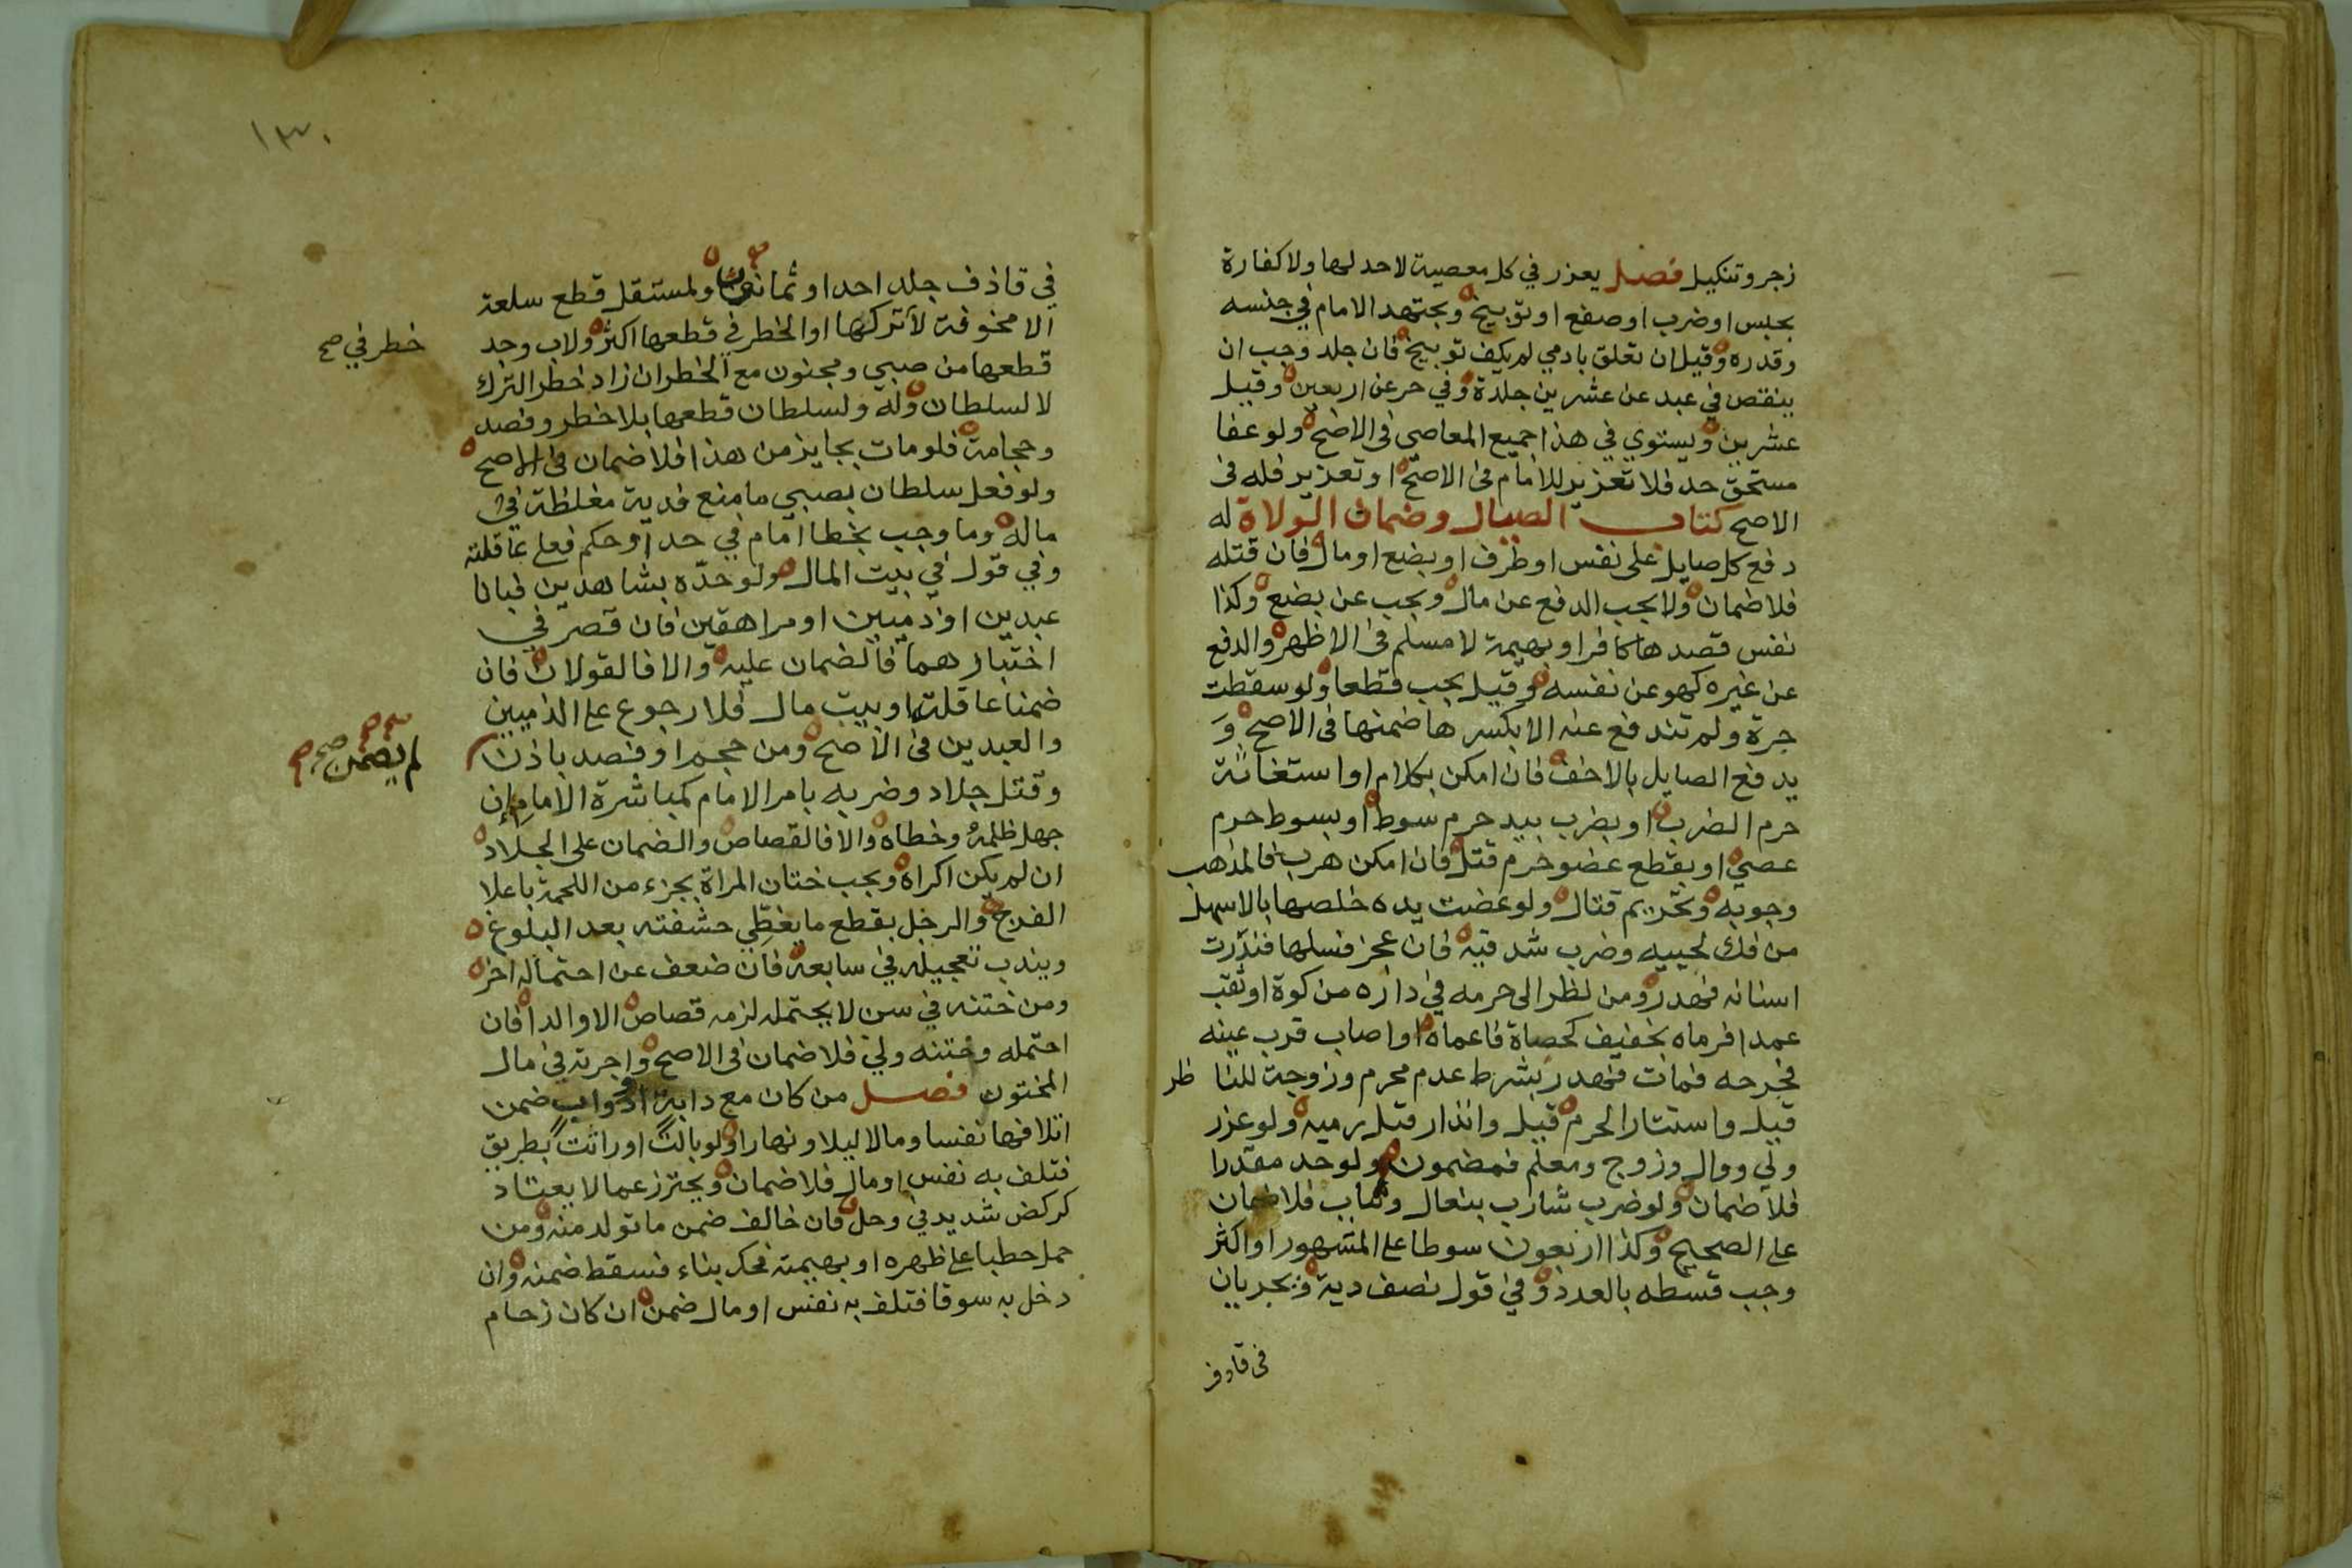 زجر وتنكيل فصل يعزر في كل معصية لا حد لها ولا كفارة
بحبس او ضرب او صفع او توبيخ ويجتهد الامام في جنسه
وقدره وقيل ان تعلق بادمي لم يكف توبيخ فان جلد وجب ان
ينقص في عبد عن عشرين جلدة وفي حر عن اربعين وقيل
عشرين ويستوي في هذا جميع المعاصي في الاصح ولو عفا
مستحق حد فلا تعزير للامام في الاصح او تعزير فله في
الاصح كتاب الصيال وضمان الولاة له
دفع كل صايل على نفس او طرف او بضع او مال فان قتله
فلا ضمان ولا يجب الدفع عن مال ويجب عن بضع وكذا
نفس قصدها كافر او بهيمة لا مسلم في الاظهر والدفع
عن غيره كهو عن نفسه وقيل يجب قطعا ولو سقطت
جرة ولم تندفع عنه الا بكسرها ضمنها في الاصح وَ
يدفع الصايل بالاخف فان امكن بكلام او استغاثة
حرم الضرب او بضرب بيد حرم سوط او بسوط حرم
عصي او بقطع عضو حرم قتل فان امكن هرب فالمذهب
وجوبه وتحريم قتال ولو عضت يده خلصها بالاسهل
من فك لحييه وضرب شدقيه فان عجز فسلها فندرت
اسنانه فهدر ومن نظر الى حرمه في داره من كوة او ثقب
عمدا فرماه بخفيف كحصاة فاعماه او اصاب قرب عينه
فجرحه فمات فهدر بشرط عدم محرم وزوجة للنا ظر
قيل واستتار الحرم قيل وانذار قبل رميه ولو عزر
ولي ووال وزوج ومعلم فمضمون ولو حد مقدرا
فلا ضمان ولو ضرب شارب بنعال وثياب فلا ضمان
على الصحيح وكذا اربعون سوطا على المشهور او اكثر
وجب قسطه بالعدد وفي قول نصف دية ويجريان
في قاذف
١٣٠
في قاذف جلد احدا وثمانين ولمستقل قطع سلعة
الا مخوفة لا تركها او الخطر في قطعها اكثر ولاب وجد
خطر في صح
قطعها من صبي ومجنون مع الخطر ان زاد خطر الترك
لا لسلطان وله ولسلطان قطعها بلا خطر وفصد
وحجامة فلو مات بجايز من هذا فلا ضمان في الاصح
ولو فعل سلطان بصبي ما منع فدية مغلظة في
ماله وما وجب بخطا امام في حد او حكم فعلى عاقلته
وفي قول في بيت المال ولو حدّه بشاهدين فبانا
عبدين او ذميين او مراهقين فان قصر في
اختبارهما فالضمان عليه والا فالقولان فان
ضمنا عاقلة او بيت مال فلا رجوع على الذميين
والعبدين في الاصح ومن حجم او فصد باذن
لم يضمن صح
وقتل جلاد وضربه بامر الامام كمباشرة الامام ان
جهل ظلمه وخطاه والا فالقصاص والضمان على الجلاد
ان لم يكن اكراه ويجب ختان المراة بجزء من اللحمة باعلا
الفرج والرجل بقطع ما يغطي حشفته بعد البلوغ
ويندب تعجيله في سابعه فان ضعف عن احتماله اخر
ومن ختنه في سن لا يحتمله لزمه قصاص الا والدا فان
احتمله وختنه ولي فلا ضمان في الاصح واجرته في مال
المختون فصل من كان مع دابة او دواب ضمن
اتلافها نفسا ومالا ليلا ونهارا ولو بالت او راثت بطريق
فتلف به نفس او مال فلا ضمان ويحترز عما لا يعتاد
كركض شديد في وحل فان خالف ضمن ما تولد منه ومن
حمل حطبا على ظهره او بهيمة فحك بناء فسقط ضمنه وان
دخل به سوقا فتلف به نفس او مال ضمن ان كان زحام